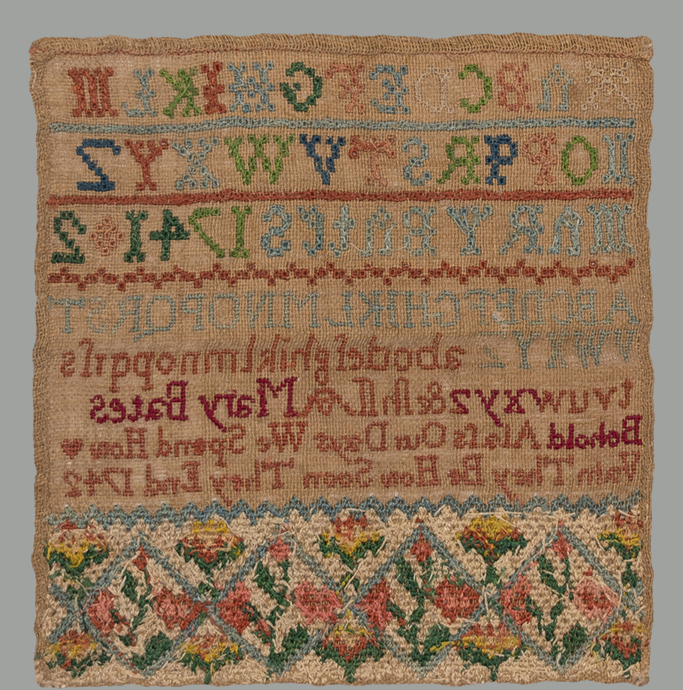 A B C D E F G H I K L M
N O P Q R S T V W X Y Z
MARY BAteS 1741 2
ABCDEFGHIKLMNOPQRST
VWXYZ
abcdefghiklmnopqrſs
tvuwxyz& Mary Bates
Behold Alaſs Our Days We Spend How
Vain They Be How Soon They End 1742